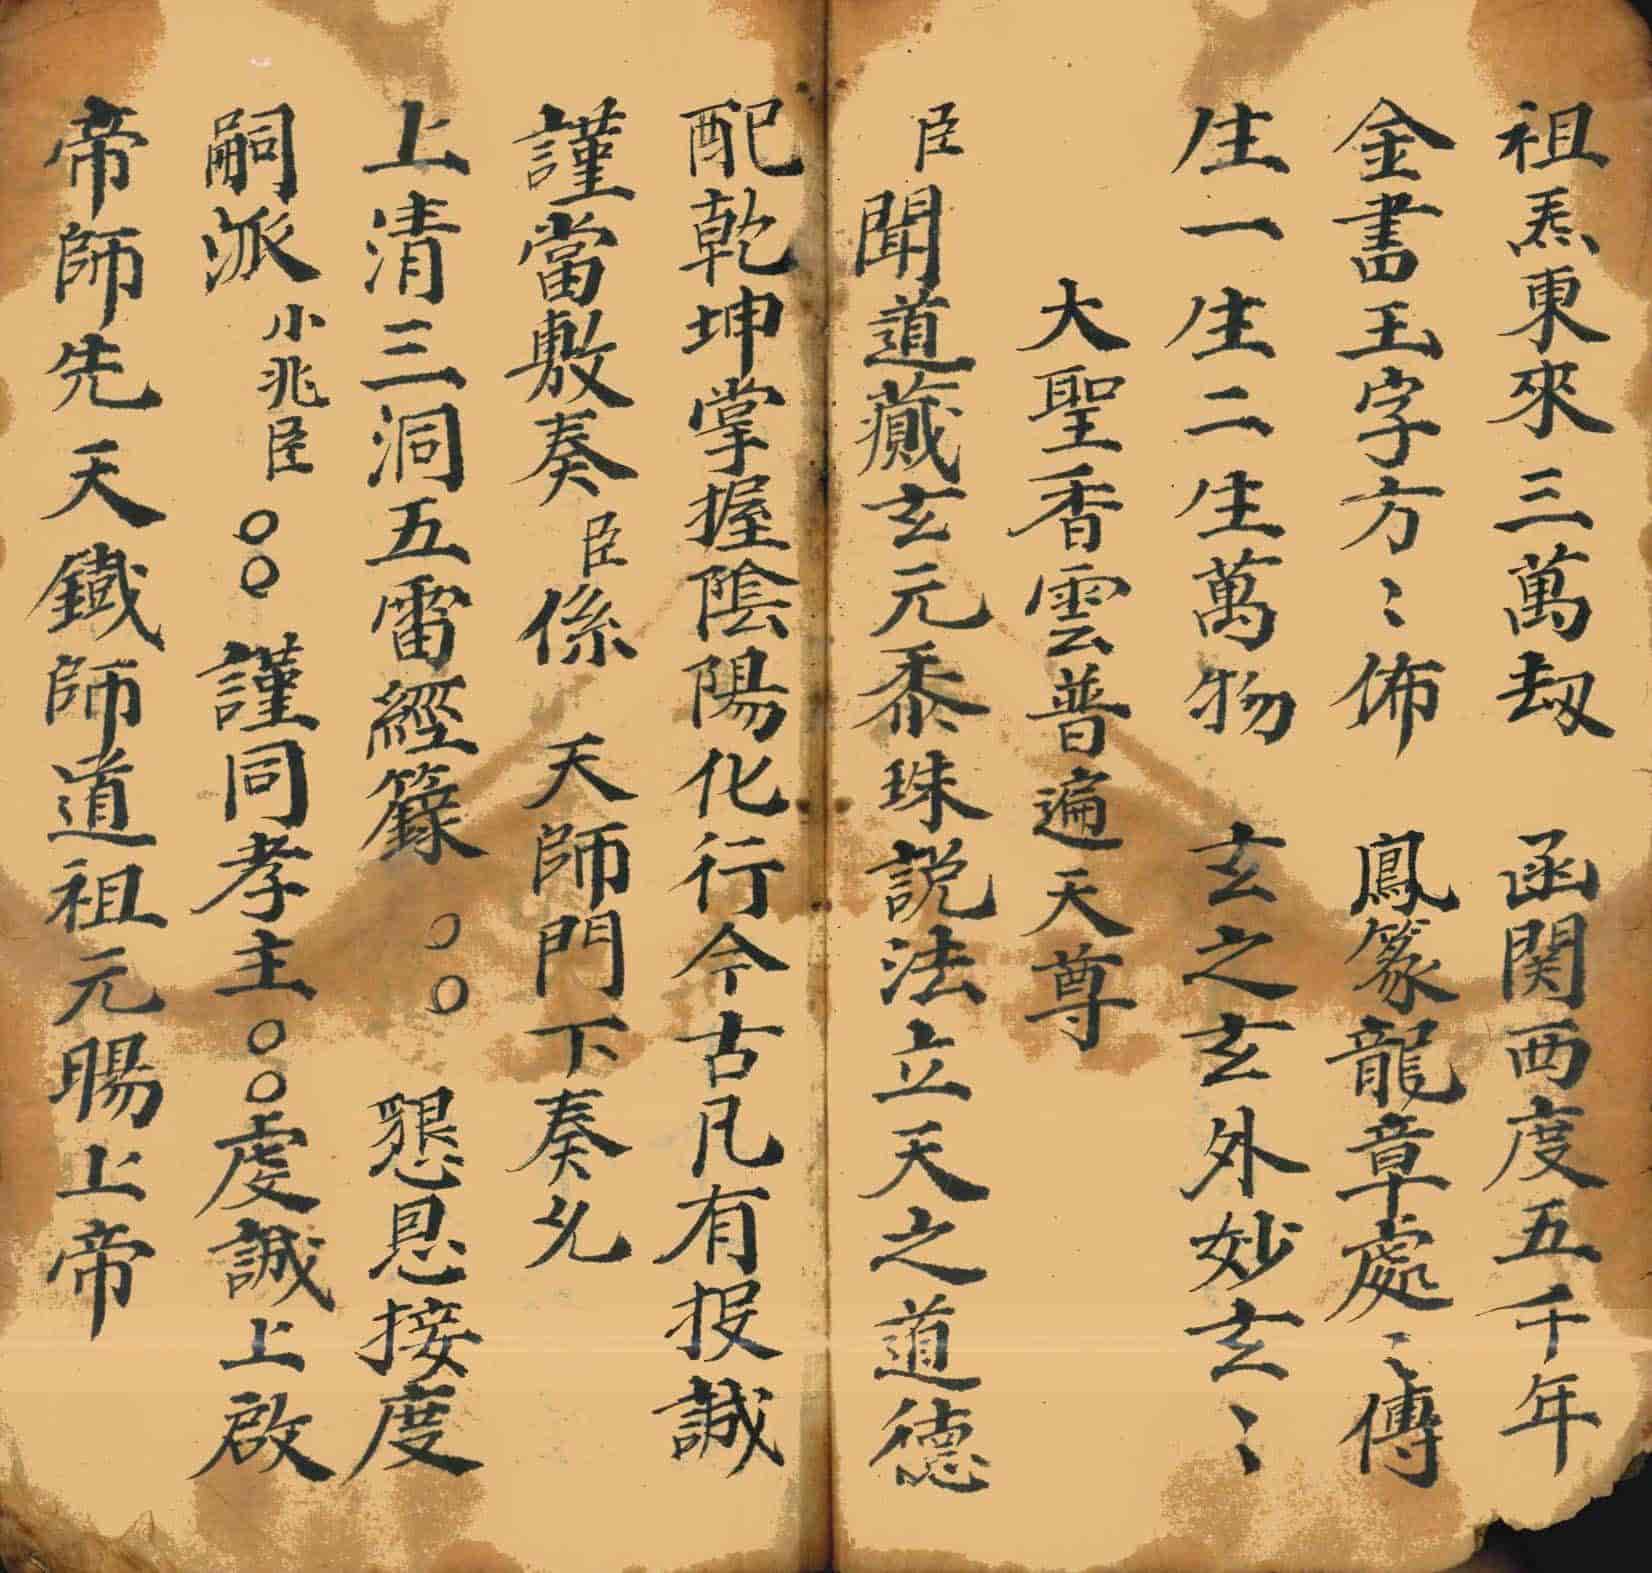 祖炁東來三萬刼 函関西度五千年
金書玉字方〻佈 鳳篆龍章處〻傳
生一生二生萬物 玄之玄外妙玄〻
大聖香雲普遍天尊
臣聞道藏玄元黍珠説法立天之道德
配乾坤掌握陰陽化行今古凡有投誠
謹當敷奏臣係 天師門下奏
上清三洞五雷經籙 〇〇 懇恩接度
嗣派小兆臣〇〇謹同孝主〇〇虔誠上啟
帝師先天鐵師道祖元賜上帝